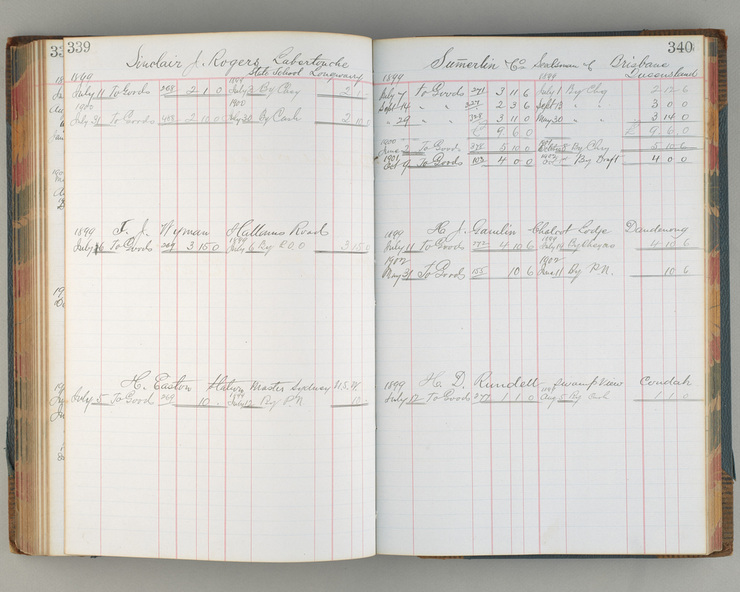 339
Sinclair J. Rogers Labertouche
State School Longwarry
1899 1899
July 11 To Goods 2 1 0 July By Chq 2 1
1900 1900
July 31 To Goods 2 10 0 July 30 By Cash 2 10
F. J. Wyman Hallams Road
1899 1899
July 16 To Goods 3 15 0 July 6 By P.O.O 3 15
H. Easton Station Master Sydney N.S.W.
1899
July 5 To Good 10 July By P.N 10
340
Sumerlin & Co Brisbane
Queensland
1899 1899
July 7 To Goods 271 3 11 6 July 1 By Chq 2 12 6
Sept 14 " " 327 2 3 6 Sept 18 " " 3 0 0
" 29 " " 3 11 0 May 30 " " 3 14 0
£ 9 6 0 £ 9 6 0
1900
June To Goods 5 10 6 By Chq 5 10 6
1901
Oct 9 To Goods 102 4 0 0 By Draft 4 0 0
H. J. Gamlin Chalcot Lodge Dandenong
1899 1899
July 11 To Goods 272 4 10 6 July 14 By Cheque 4 10 6
1902 1902
May 31 To Goods 155 10 6 June 11 By P.N. 10 6
H. D. Rundell Swampview Condah
1899 1899
July 12 To Goods 1 1 0 Aug 5 By Cash 1 1 0